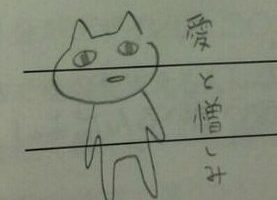 愛と憎しみ